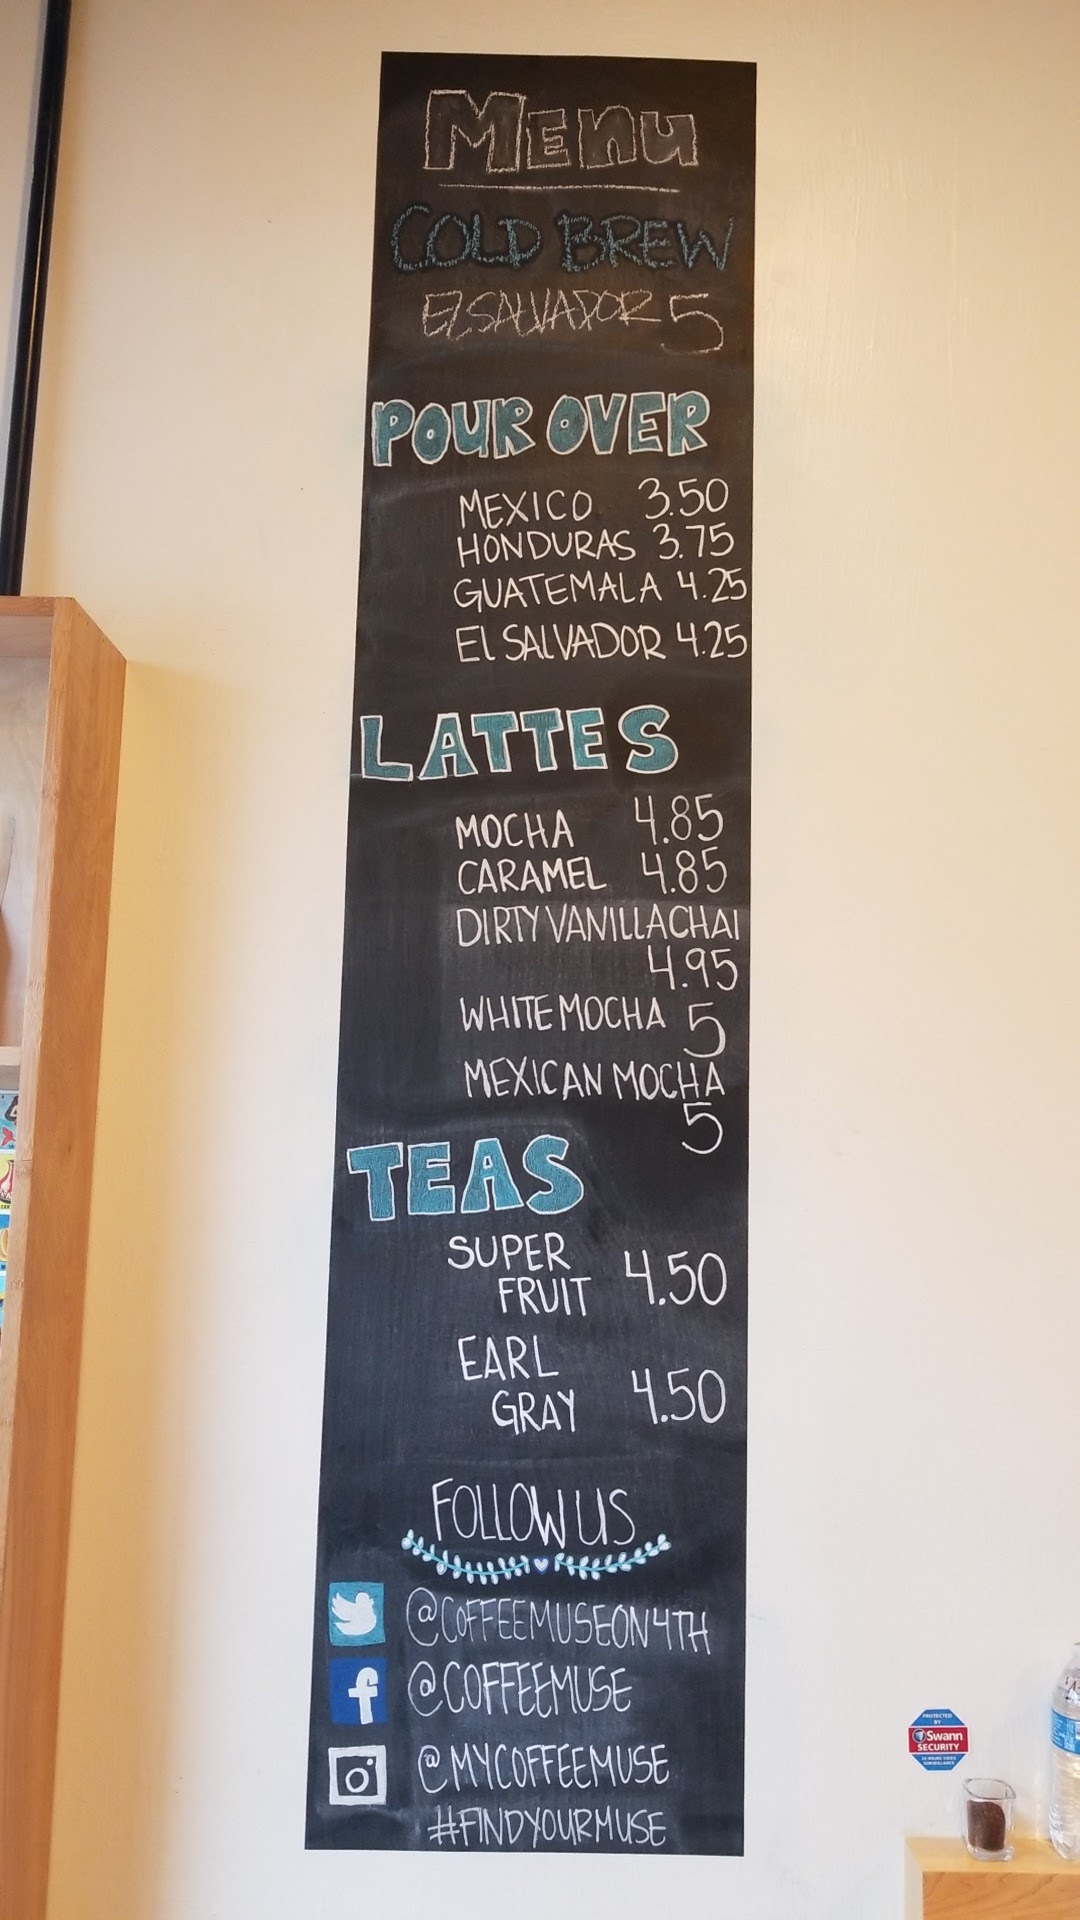 MENU
COLD BREW
EL SALVADOR 5
POUR OVER
MEXICO 3.50
HONDURAS 3.75
GUATEMALA 4.25
EL SALVADOR 4.25
LATTES
MOCHA 4.85
CARAMEL 4.85
DIRTY VANILLA CHAI
4.95
WHITE MOCHA 5
MEXICAN MOCHA
5
TEAS
SUPER
FRUIT 4.50
EARL
GRAY 4.50
FOLLOW US
@COFFEEMUSEON4TH
f @COFFEEMUSE
@MYCOFFEEMUSE
#FINDYOURMUSE
PROTECTED
BY
Swann
SECURITY
24 HOURS VIDEO
SURVEILLANCE